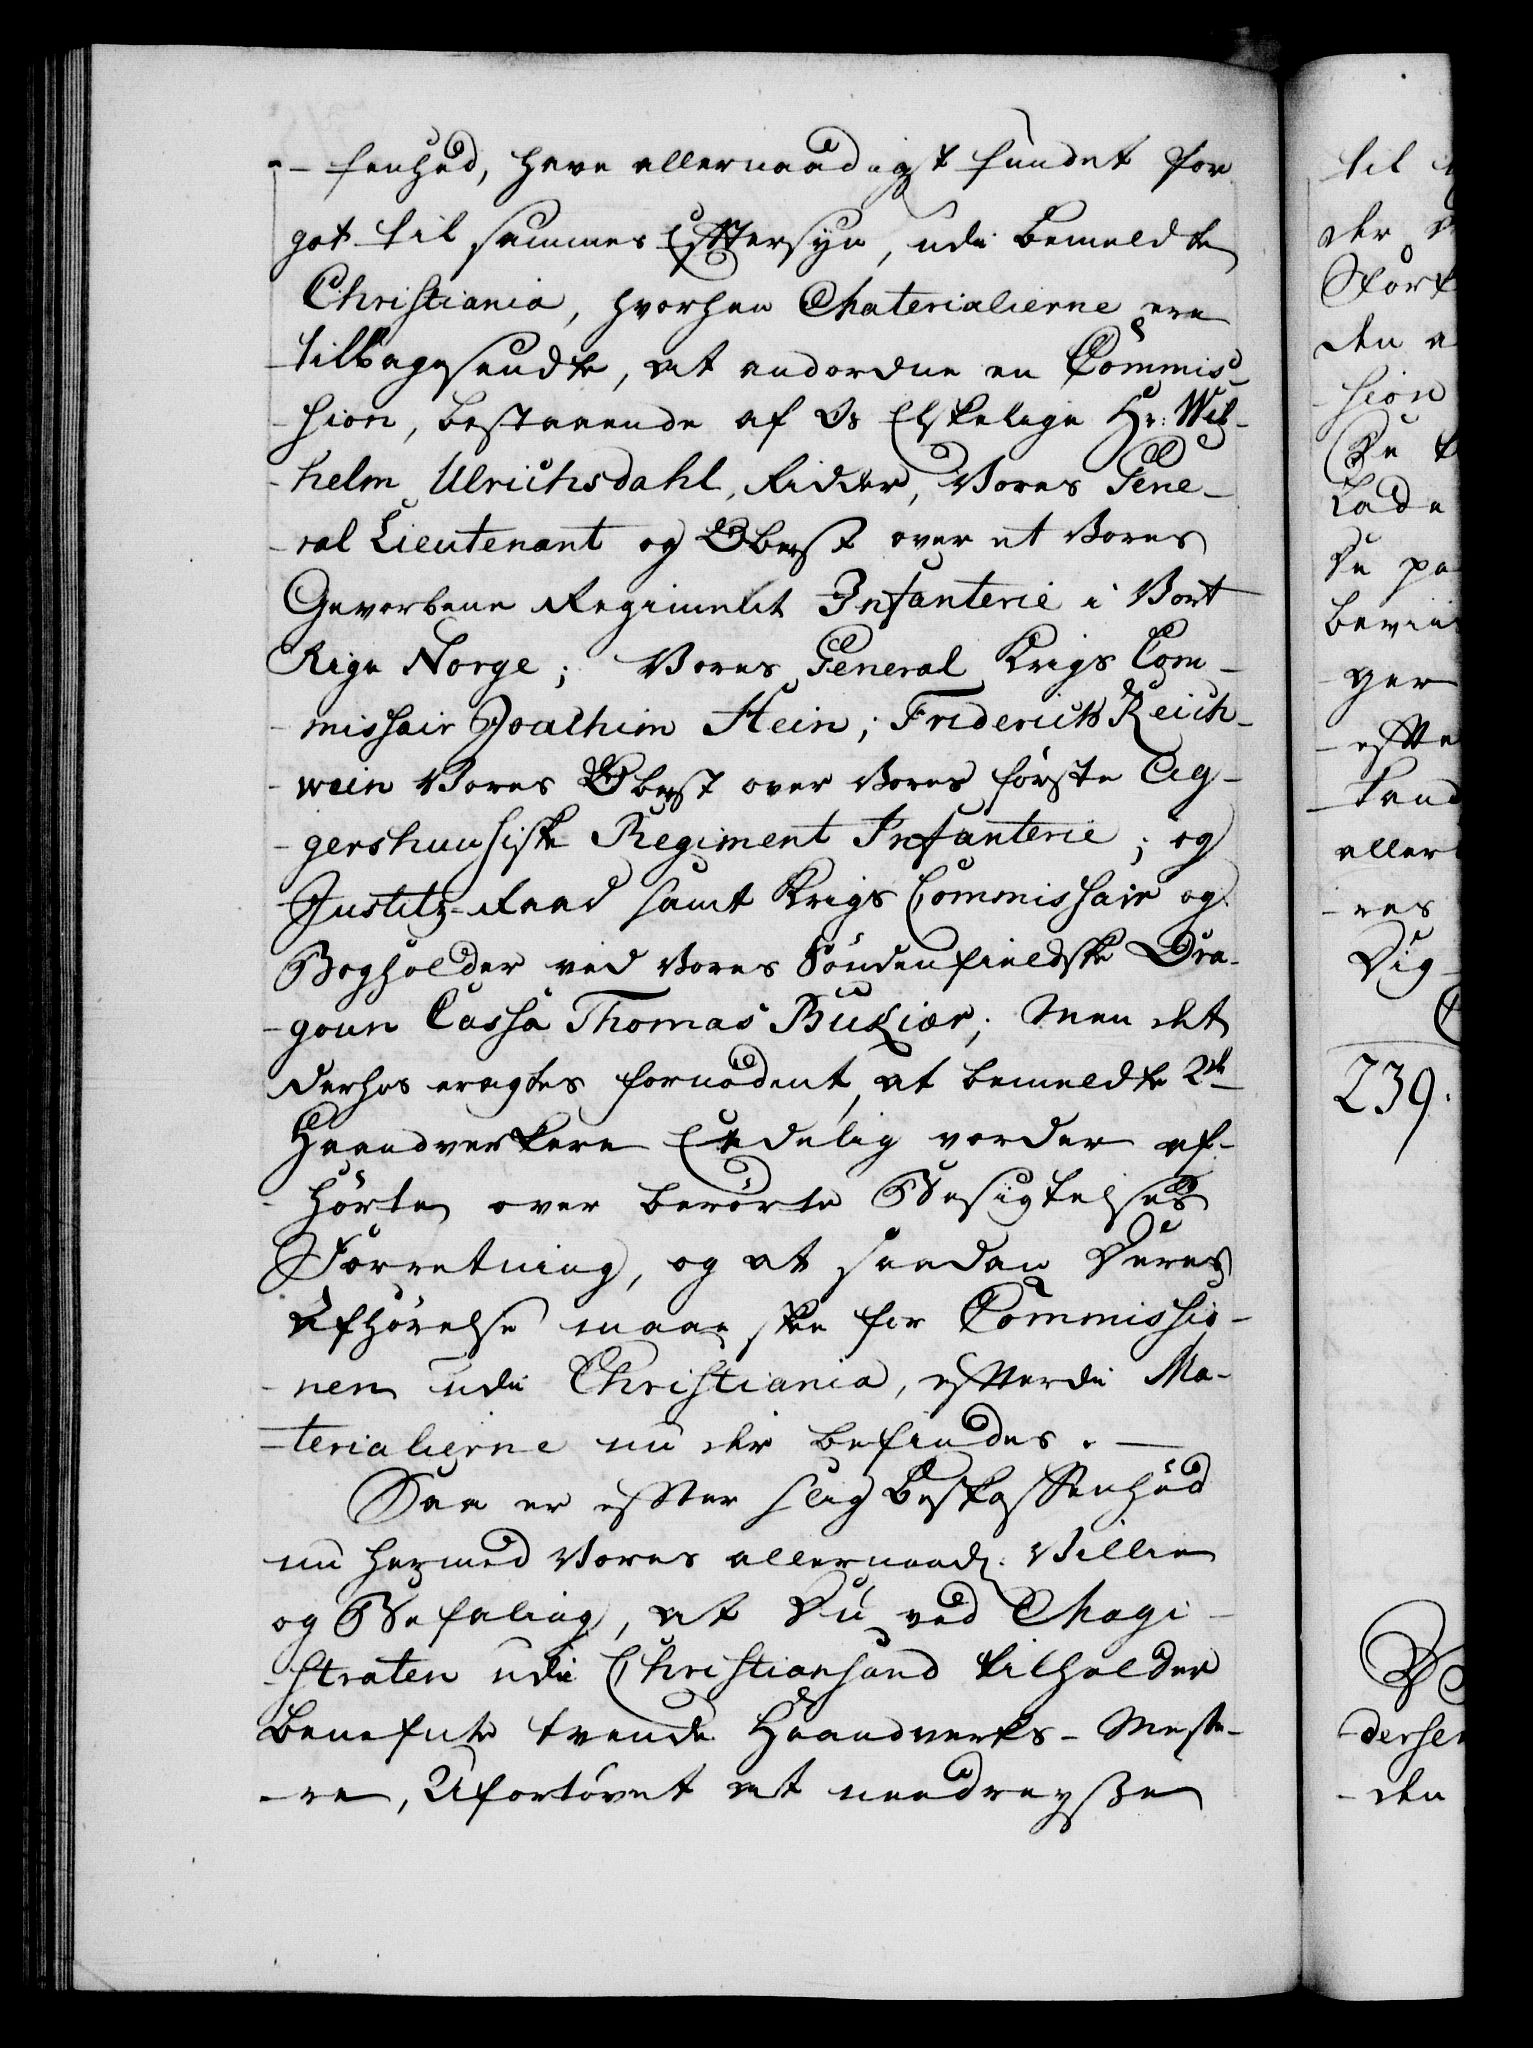 -fenhed, have allernaadigst fundet for
got til sammes Efftersyn, udi bemeldte
Christiania, hvorhen Materialierne ere
tilbagesendte, at andordne en Commis-
sion, bestaaende af Os Elskelige Hr: Wil-
-helm Ulrichsdahl, Ridder, Vores Gene-
-ral Lieutenant og Oberst over et Vores
Gevorbene Regiment Infanterie i Vort
Rige Norge; Vores General Krigs Com-
-missair Joachim Hein; Friderich Reich-
-wein Vores Oberst over Vores første Ag-
-gershuusiske Regiment Infanterie; og
Justitz-Raad samt Krigs Commissair og
Bogholder ved Vores Søndenfieldske Dra-
-goun Cassa Thomas Bukiær; Men det
derhos eragtes fornødent, at bemeldte 2de
Haandverkere Eedelig vorder af-
-hørte over berørte Besigtelses
Forretning, og at saadan Deres
Afhørelse maae skee for Commissio-
-nen udi Christiania, efterdi Ma-
-terialierne nu der befindes. -
Saa er effter slig Beskaffenhed
nu hermed Vores allernaad: Villie
og Befaling, at Du ved Magi-
-straten udi Christiansand tilholder
benefnte tvende Haandverks-Meste-
-re, Ufortøvet at needreyse
til
der
den
sion
Du
Lade
Du pa
ger
effte
aller
res
Dig
239.
dersen
-den